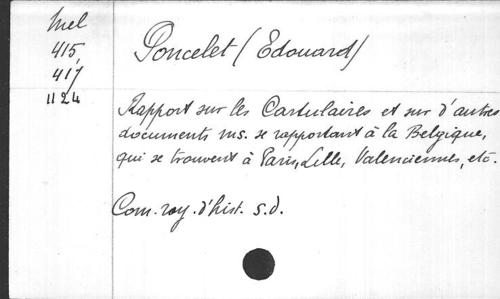 Mel
415,
417
1124
Poncelet (Edouard)
Rapport sur les Cartulaires et sur d'autres
documents ms. se rapportant à la Belgique,
qui se trouvent à Paris, Lille, Valenciennes, etc.
Com. roy. d'hist. s.d.